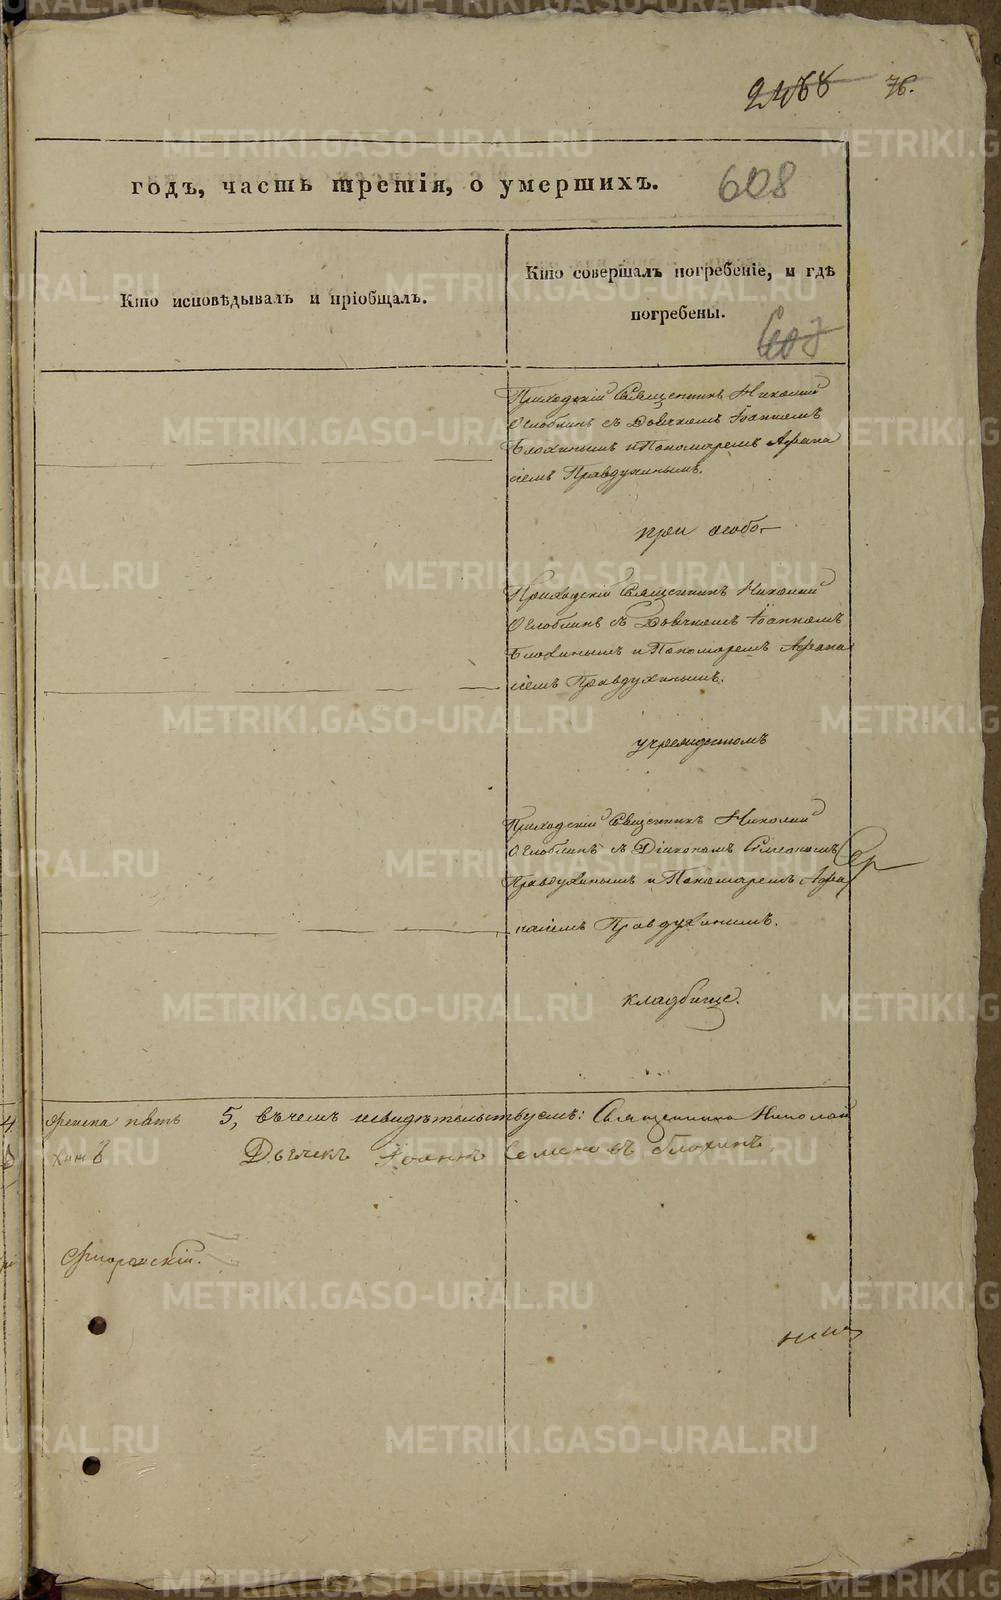 2488 76.
годъ, часть третія, о умершихъ. 608
Кто исповѣдывалъ и пріобщалъ.
Кто совершалъ погребеніе, и гдѣ
погребены.
607
Приходскій Священникъ Николай
Оглоблинъ съ Дьячкомъ Іоанномъ
Блохинымъ и Пономаремъ Афана
сіемъ Правдухинымъ.
при особо
Приходскій Священникъ Николай
Оглоблинъ съ Дьячкомъ Іоанномъ
Блохинымъ и Пономаремъ Афана
сіемъ Правдухинымъ.
Приходскій Священникъ Николай
Оглоблинъ съ Діакономъ Симеономъ
Правдухинымъ и Пономаремъ Афа
насіемъ Правдухинымъ.
кладбище.
5, въ чемъ и свидѣтельствуемъ: Священникъ Николай
Дьячекъ Іоаннъ Семеновъ Блохинъ
METRIKI.GASO-URAL.RU